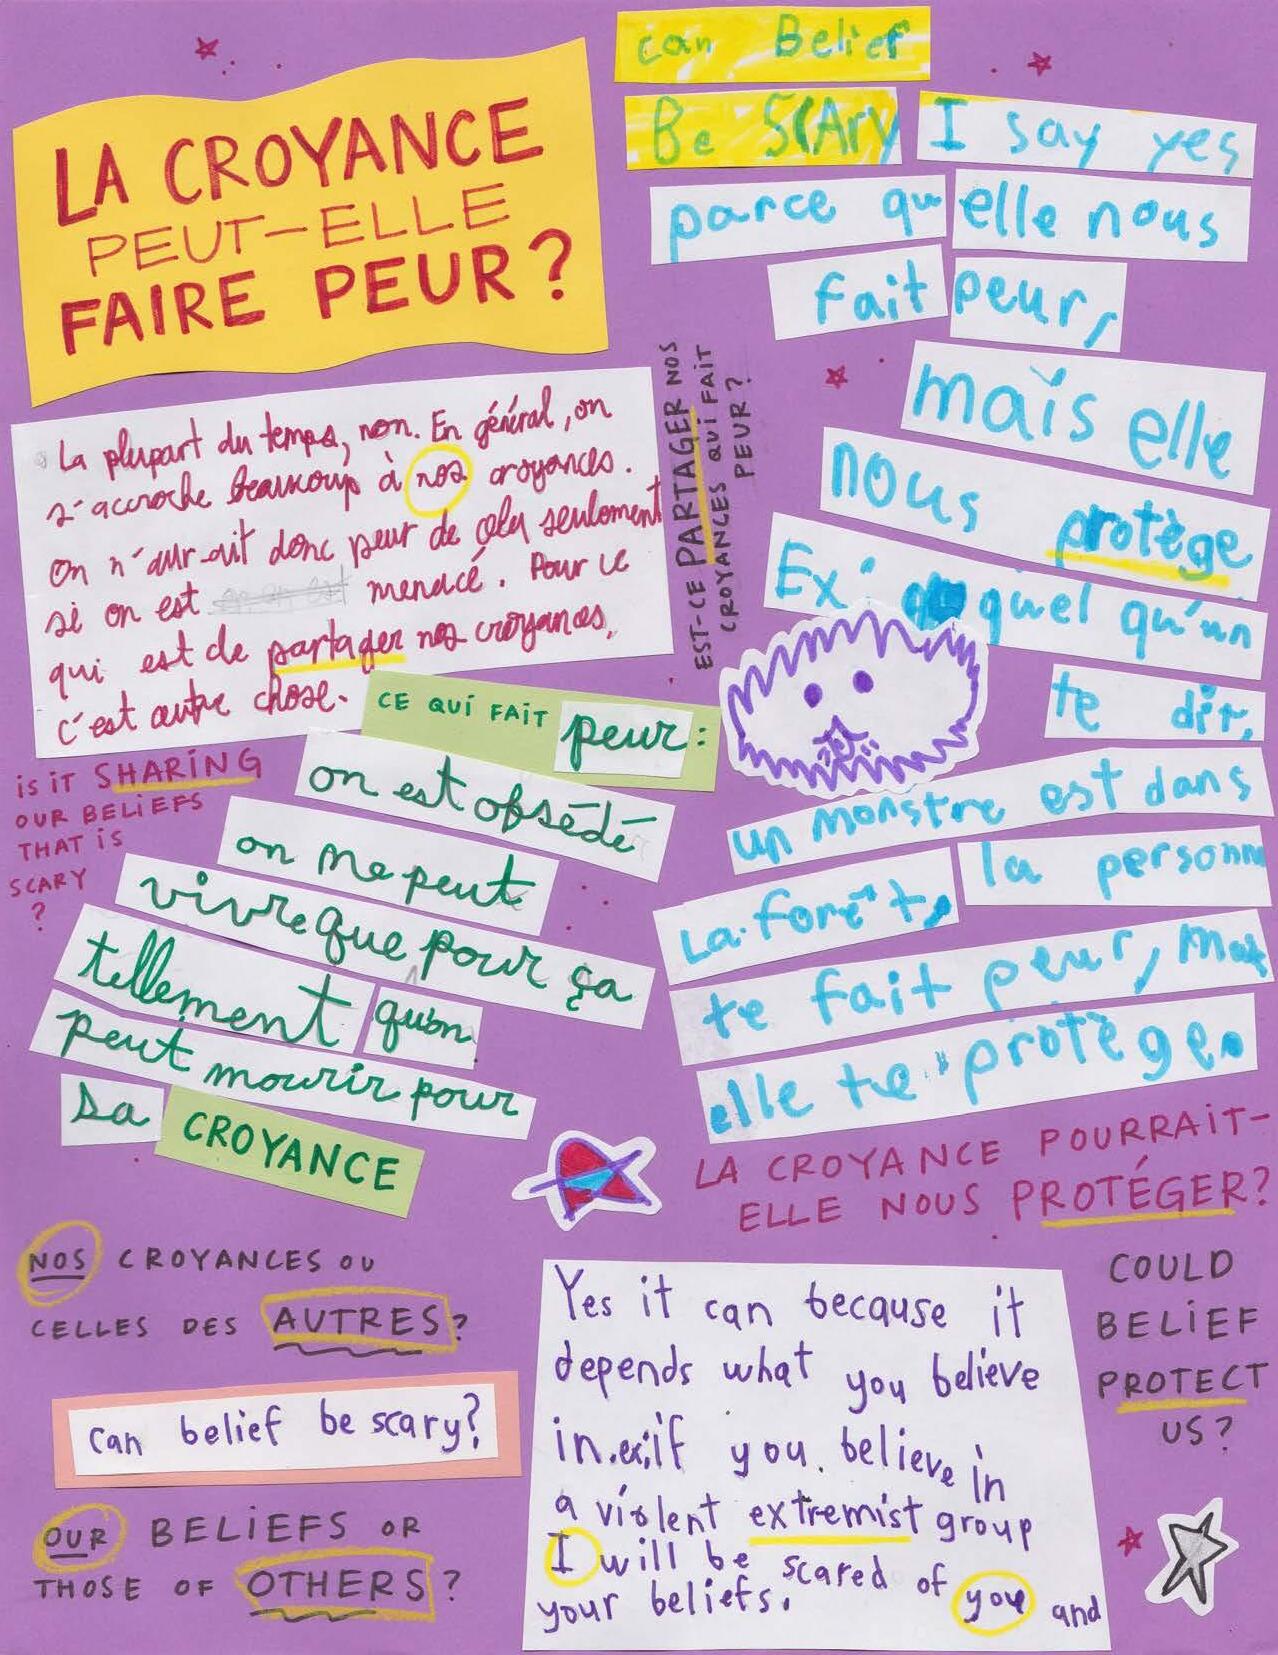 LA CROYANCE
PEUT-ELLE
FAIRE PEUR?
can Belief
Be SCAry I say yes
parce qu elle nous
fait peur,
mais elle
nous protège
Ex: quel qu'un
te dit,
un monstre est dans
la forêt, la personn
te fait peur, mais
elle te protège.
EST-CE PARTAGER NOS
CROYANCES QUI FAIT
PEUR?
La plupart du temps, non. En général, on
s'accroche beaucoup à nos croyances.
On n'aurait donc peur de cela seulement
si on est menacé. Pour ce
qui est de partager nos croyances,
c'est autre chose.
IS IT SHARING
OUR BELIEFS
THAT IS
SCARY
?
CE QUI FAIT peur:
on est obsédé
on ne peut
vivre que pour ça
tellement qu'on
peut mourir pour
sa CROYANCE
LA CROYANCE POURRAIT-
ELLE NOUS PROTÉGER?
NOS CROYANCES OU
CELLES DES AUTRES?
can belief be scary?
OUR BELIEFS OR
THOSE OF OTHERS?
Yes it can because it
depends what you believe
in.ex:if you believe in
a violent extremist group
I will be scared of you and
your beliefs.
COULD
BELIEF
PROTECT
US?